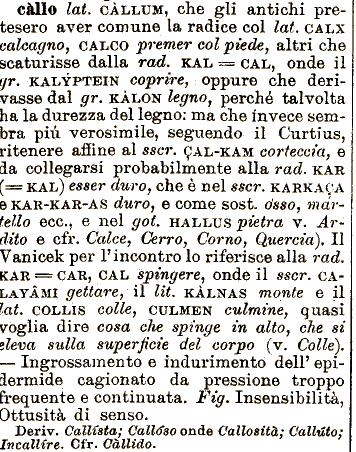 càllo lat. CÀLLUM, che gli antichi pre-
tesero aver comune la radice col lat. CALX
calcagno, CALCO premer col piede, altri che
scaturisse dalla rad. KAL = CAL, onde il
gr. KALÝPTEIN coprire, oppure che deri-
vasse dal gr. KÀLON legno, perché talvolta
ha la durezza del legno: ma che invece sem-
bra piú verosimile, seguendo il Curtius,
ritenere affine al sscr. ÇAL-KAM corteccia, e
da collegarsi probabilmente alla rad. KAR
(= KAL) esser duro, che è nel sscr. KARKAÇA
e KAR-KAR-AS duro, e come sost. osso, mar-
tello ecc., e nel got. HALLUS pietra v. Ar-
dito e cfr. Calce, Cerro, Corno, Quercia). Il
Vanicek per l'incontro lo riferisce alla rad.
KAR = CAR, CAL spingere, onde il sscr. CA-
LAYÂMI gettare, il lit. KÀLNAS monte e il
lat. COLLIS colle, CULMEN culmine, quasi
voglia dire cosa che spinge in alto, che si
eleva sulla superficie del corpo (v. Colle).
— Ingrossamento e indurimento dell' epi-
dermide cagionato da pressione troppo
frequente e continuata. Fig. Insensibilità,
Ottusità di senso.
Deriv. Callísta; Callóso onde Callosità; Callúto;
Incallíre. Cfr. Càllido.